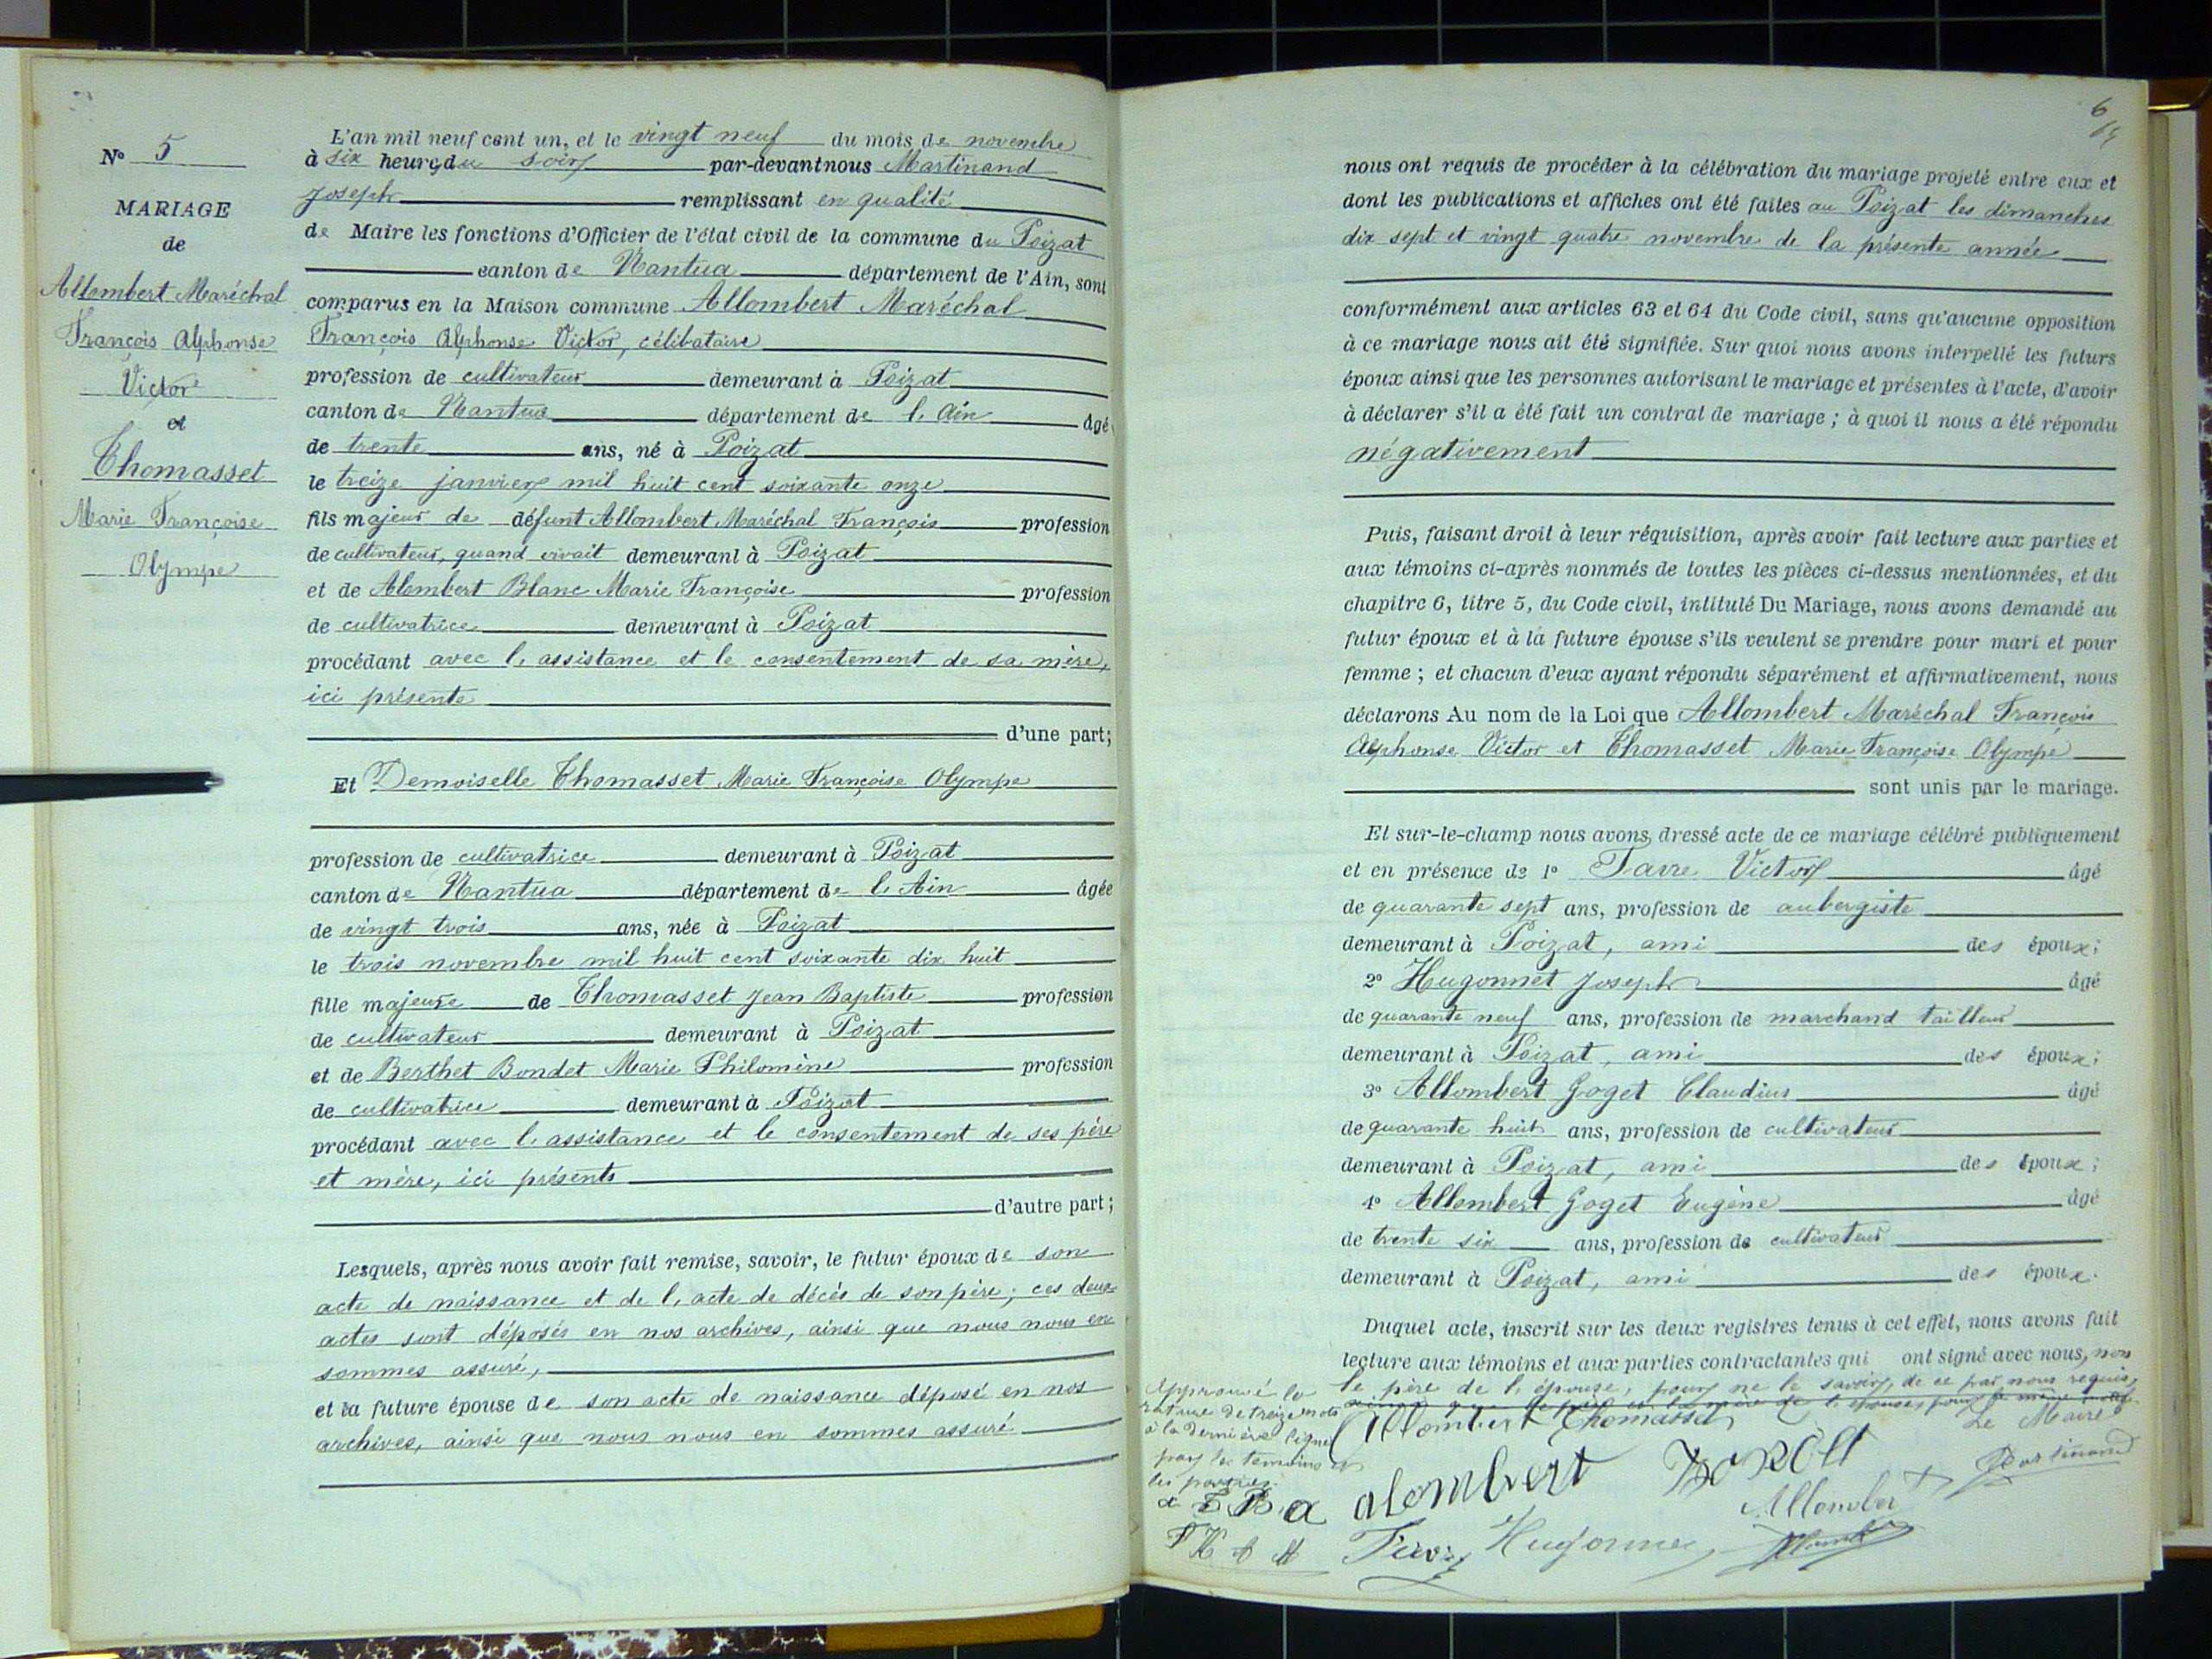 N° 5
MARIAGE
de
Allombert Maréchal
François Alphonse
Victor
et
Thomasset
Marie Françoise
Olympe
L'an mil neuf cent un, et le vingt neuf du mois de novembre
à six heures du soir par-devant nous Martinand
Joseph remplissant en qualité
de Maire les fonctions d'Officier de l'état civil de la commune du Poizat
canton de Nantua département de l'Ain, sont
comparus en la Maison commune Allombert Maréchal
François Alphonse Victor, célibataire
profession de cultivateur demeurant à Poizat
canton de Nantua département de l'Ain âgé
de trente ans, né à Poizat
le treize janvier mil huit cent soixante onze
fils majeur de défunt Allombert Maréchal François profession
de cultivateur, quand vivait demeurant à Poizat
et de Alombert Blanc Marie Françoise profession
de cultivatrice demeurant à Poizat
procédant avec l'assistance et le consentement de sa mère,
ici présente
d'une part;
Et Demoiselle Thomasset Marie Françoise Olympe
profession de cultivatrice demeurant à Poizat
canton de Nantua département de l'Ain âgée
de vingt trois ans, née à Poizat
le trois novembre mil huit cent soixante dix huit
fille majeure de Thomasset Jean Baptiste profession
de cultivateur demeurant à Poizat
et de Berthet Bondet Marie Philomène profession
de cultivatrice demeurant à Poizat
procédant avec l'assistance et le consentement de ses père
et mère, ici présents
d'autre part;
Lesquels, après nous avoir fait remise, savoir, le futur époux de son
acte de naissance et de l'acte de décès de son père; ces deux
actes sont déposés en nos archives, ainsi que nous nous en
sommes assuré,
et la future épouse de son acte de naissance déposé en nos
archives, ainsi que nous nous en sommes assuré
6
nous ont requis de procéder à la célébration du mariage projeté entre eux et
dont les publications et affiches ont été faites au Poizat les dimanches
dix sept et vingt quatre novembre de la présente année
conformément aux articles 63 et 64 du Code civil, sans qu'aucune opposition
à ce mariage nous ait été signifiée. Sur quoi nous avons interpellé les futurs
époux ainsi que les personnes autorisant le mariage et présentes à l'acte, d'avoir
à déclarer s'il a été fait un contrat de mariage; à quoi il nous a été répondu
négativement
Puis, faisant droit à leur réquisition, après avoir fait lecture aux parties et
aux témoins ci-après nommés de toutes les pièces ci-dessus mentionnées, et du
chapitre 6, titre 5, du Code civil, intitulé Du Mariage, nous avons demandé au
futur époux et à la future épouse s'ils veulent se prendre pour mari et pour
femme; et chacun d'eux ayant répondu séparément et affirmativement, nous
déclarons Au nom de la Loi que Allombert Maréchal François
Alphonse Victor et Thomasset Marie Françoise Olympe
sont unis par le mariage.
Et sur-le-champ nous avons dressé acte de ce mariage célébré publiquement
et en présence de 1° Favre Victor âgé
de quarante sept ans, profession de aubergiste
demeurant à Poizat, ami des époux;
2° Hugonnet Joseph âgé
de quarante neuf ans, profession de marchand tailleur
demeurant à Poizat, ami des époux;
3° Allombert Goget Claudius âgé
de quarante huit ans, profession de cultivateur
demeurant à Poizat, ami des époux;
4° Allombert Goget Eugène âgé
de trente six ans, profession de cultivateur
demeurant à Poizat, ami des époux.
Duquel acte, inscrit sur les deux registres tenus à cet effet, nous avons fait
lecture aux témoins et aux parties contractantes qui ont signé avec nous, non
le père de l'épouse, pour ne le savoir, de ce par nous requis,
Approuvé la
rature de treize mots
à la dernière ligne
par les témoins et
les parties.
Allombert Thomasset
Le Maire
Martinand
alombert
Allomber
Hugonne